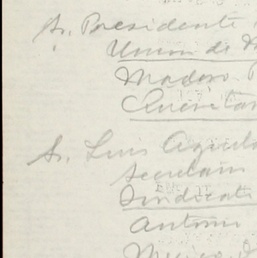 Sr. Presidente
Union de
Madero
Queretaro
Sr. Luis Aguila
Secretario
Sindicato
Antonio
Mexico, D.